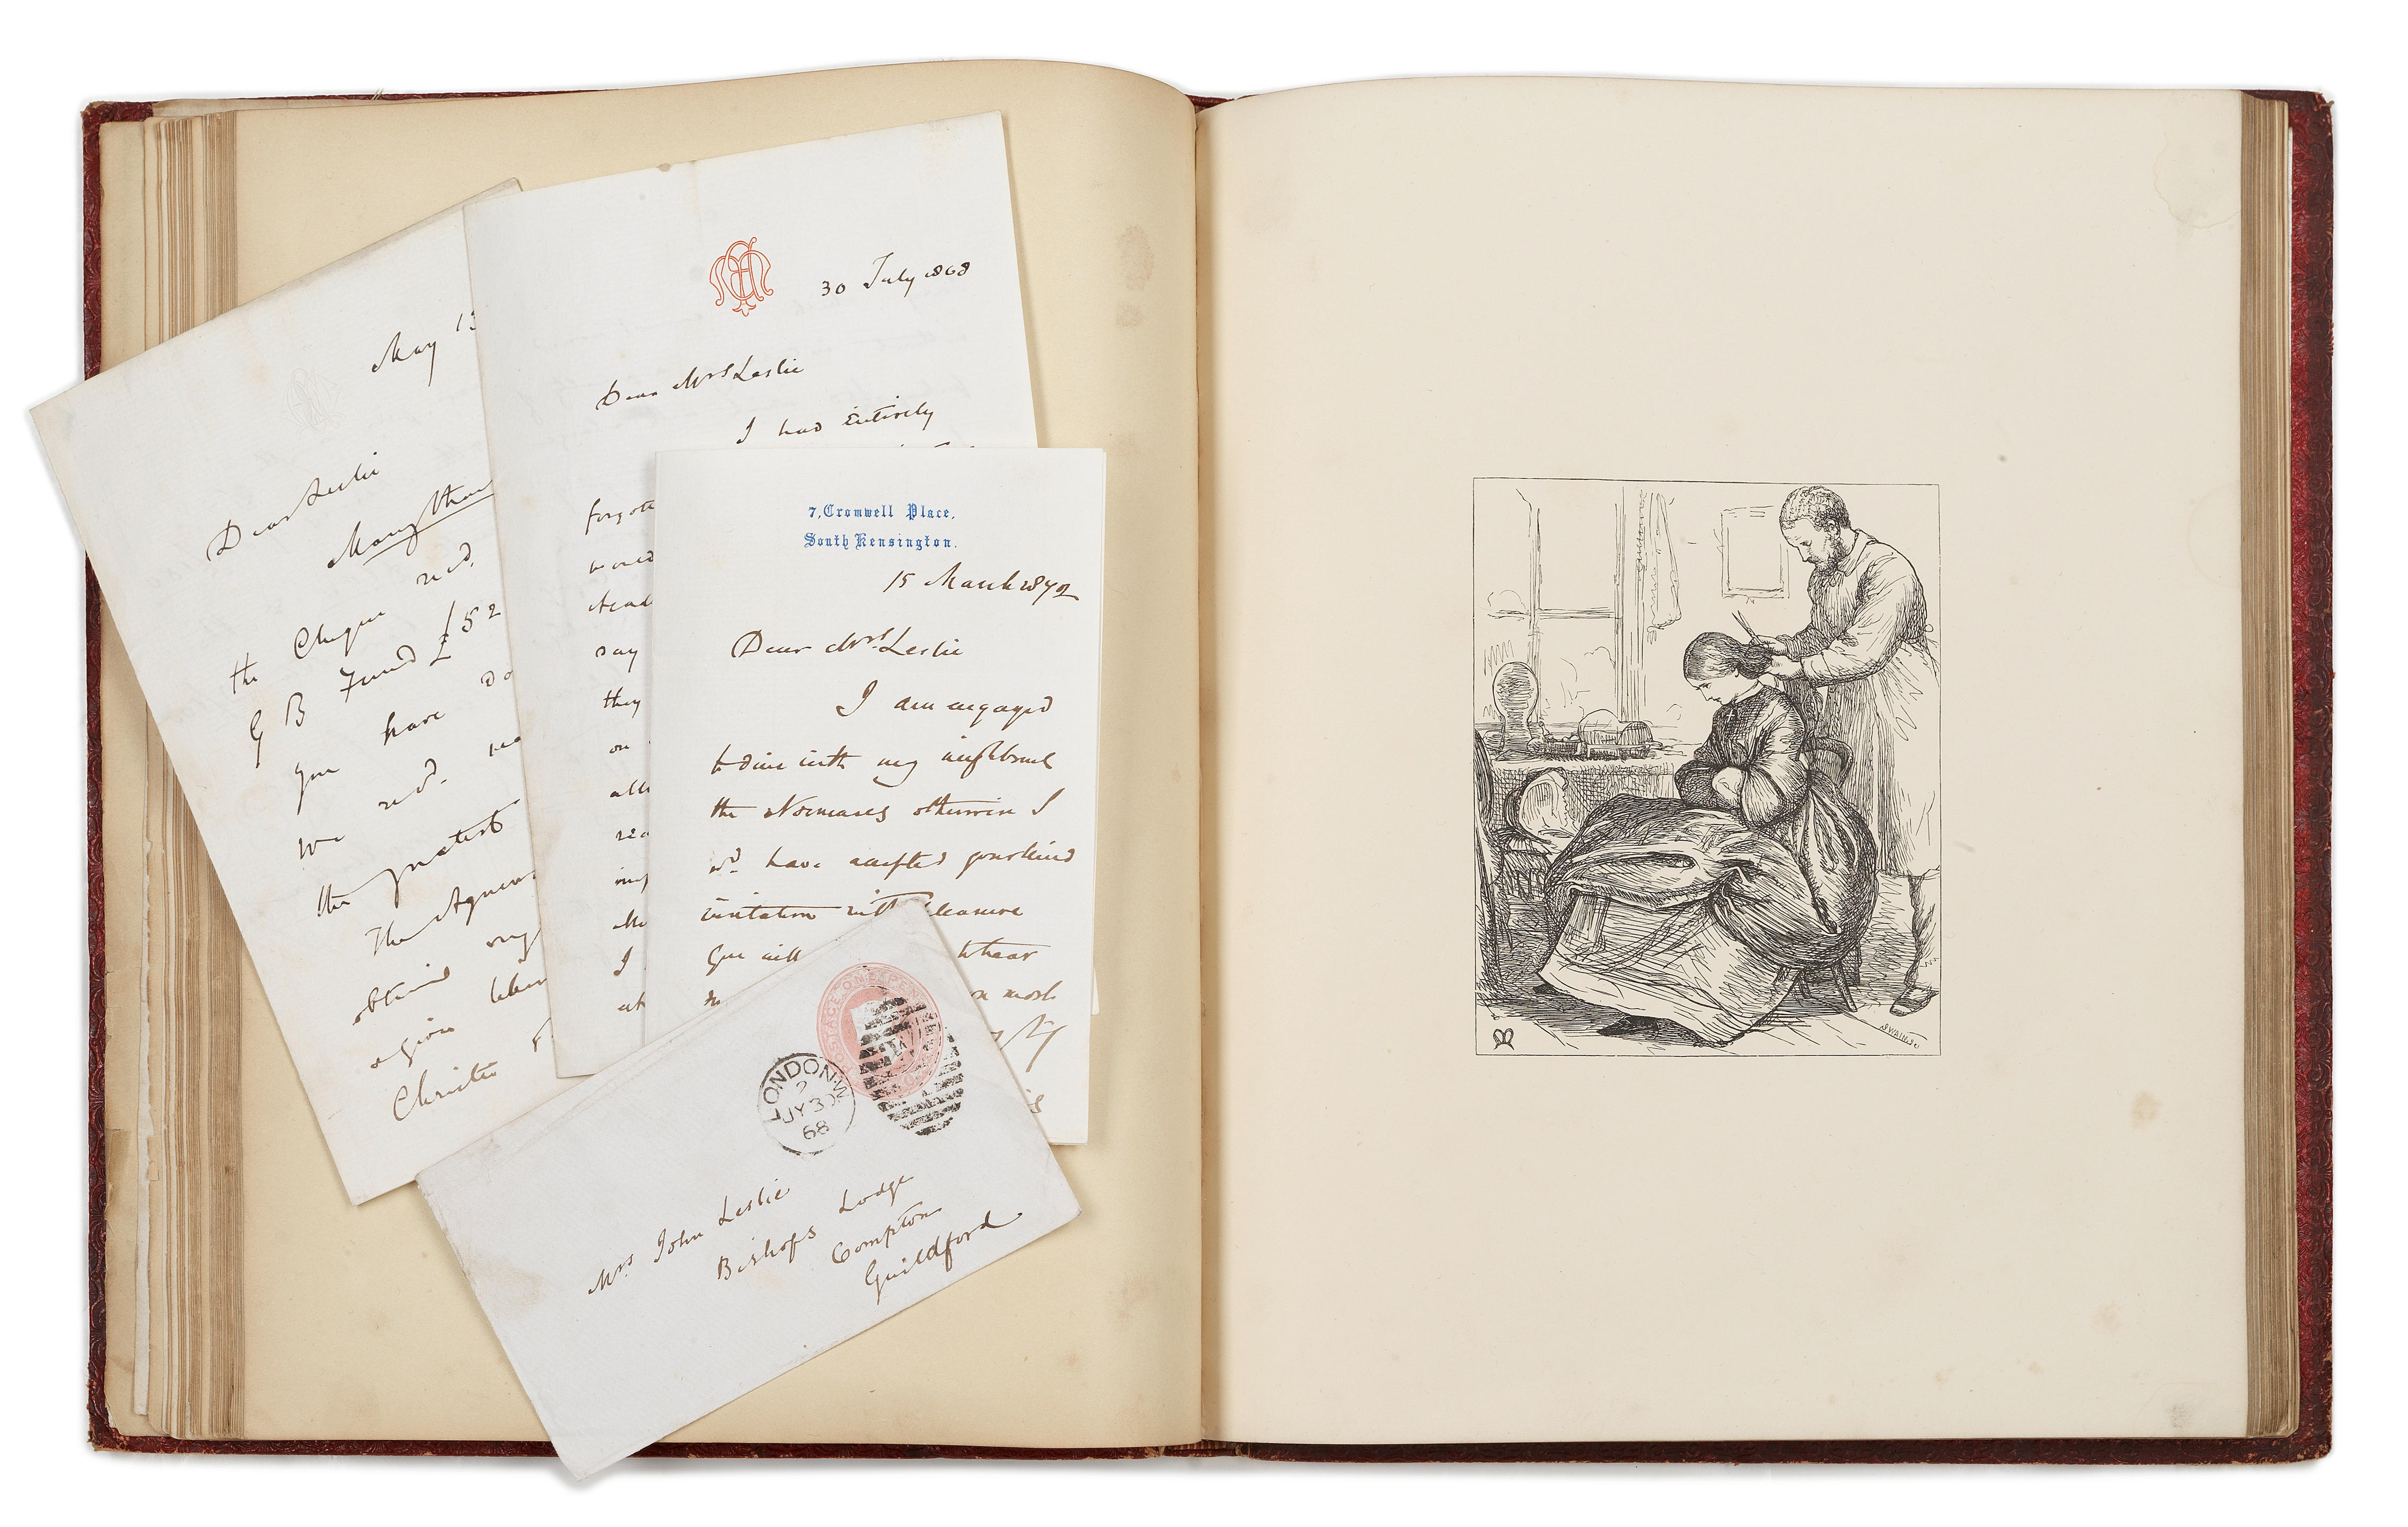 May 13
Dear Leslie
Many than
the Cheque recd.
G B Fund £52
you have do
we recd.
the greatest
The Agnew
obtained
a given
Christie
30 July 1868
Dear Mrs Leslie
I had entirely
forgott
would
Acad
say
they
on
all
I
7, Cromwell Place,
South Kensington.
15 March 1872
Dear Mrs. Leslie
I am engaged
to dine with my neighbours
the otherwise I
wd. have accepted your kind
invitation with pleasure
You will to hear
most
POSTAGE ONE PENNY
LONDON·W
2
JY 30
68
Mrs. John Leslie
Bishops Lodge
Compton
Guildford
SWAIN Sc